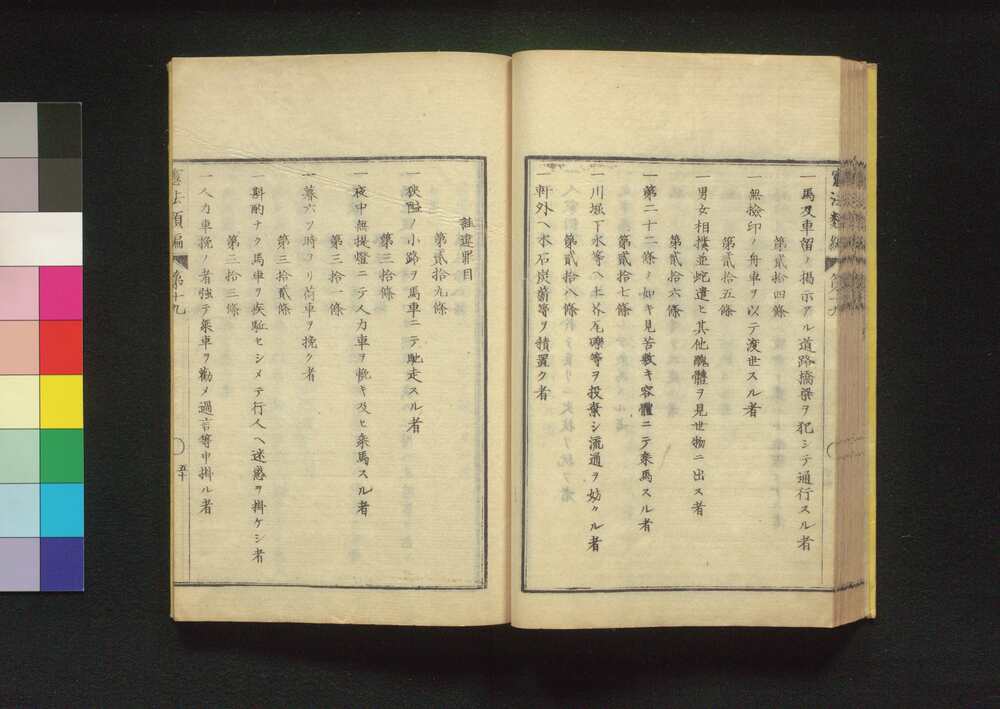 憲法類編 第十九
一馬及車留ノ掲示アル道路橋梁ヲ犯シテ通行スル者
第貳拾四條
一無檢印ノ舟車ヲ以テ渡世スル者
第貳拾五條
一男女相撲並蛇遣ヒ其他醜體ヲ見世物ニ出ス者
第貳拾六條
一第二十二條ノ如キ見苦敷キ容體ニテ乘馬スル者
第貳拾七條
一川堀下水等ヘ土芥瓦礫等ヲ投棄シ流通ヲ妨クル者
第貳拾八條
一軒外ヘ木石炭薪等ヲ積置ク者
詿違罪目
第貳拾九條
一狹隘ノ小路ヲ馬車ニテ馳走スル者
第三拾條
一夜中無提燈ニテ人力車ヲ挽キ及ヒ乘馬スル者
第三拾一條
一暮六ツ時ヨリ荷車ヲ挽ク者
第三拾貳條
一斟酌ナク馬車ヲ疾駈セシメテ行人ヘ迷惑ヲ掛ケシ者
第三拾三條
一人力車挽ノ者強テ乘車ヲ勸メ過言等申掛ル者
憲法類編 第十九 五十